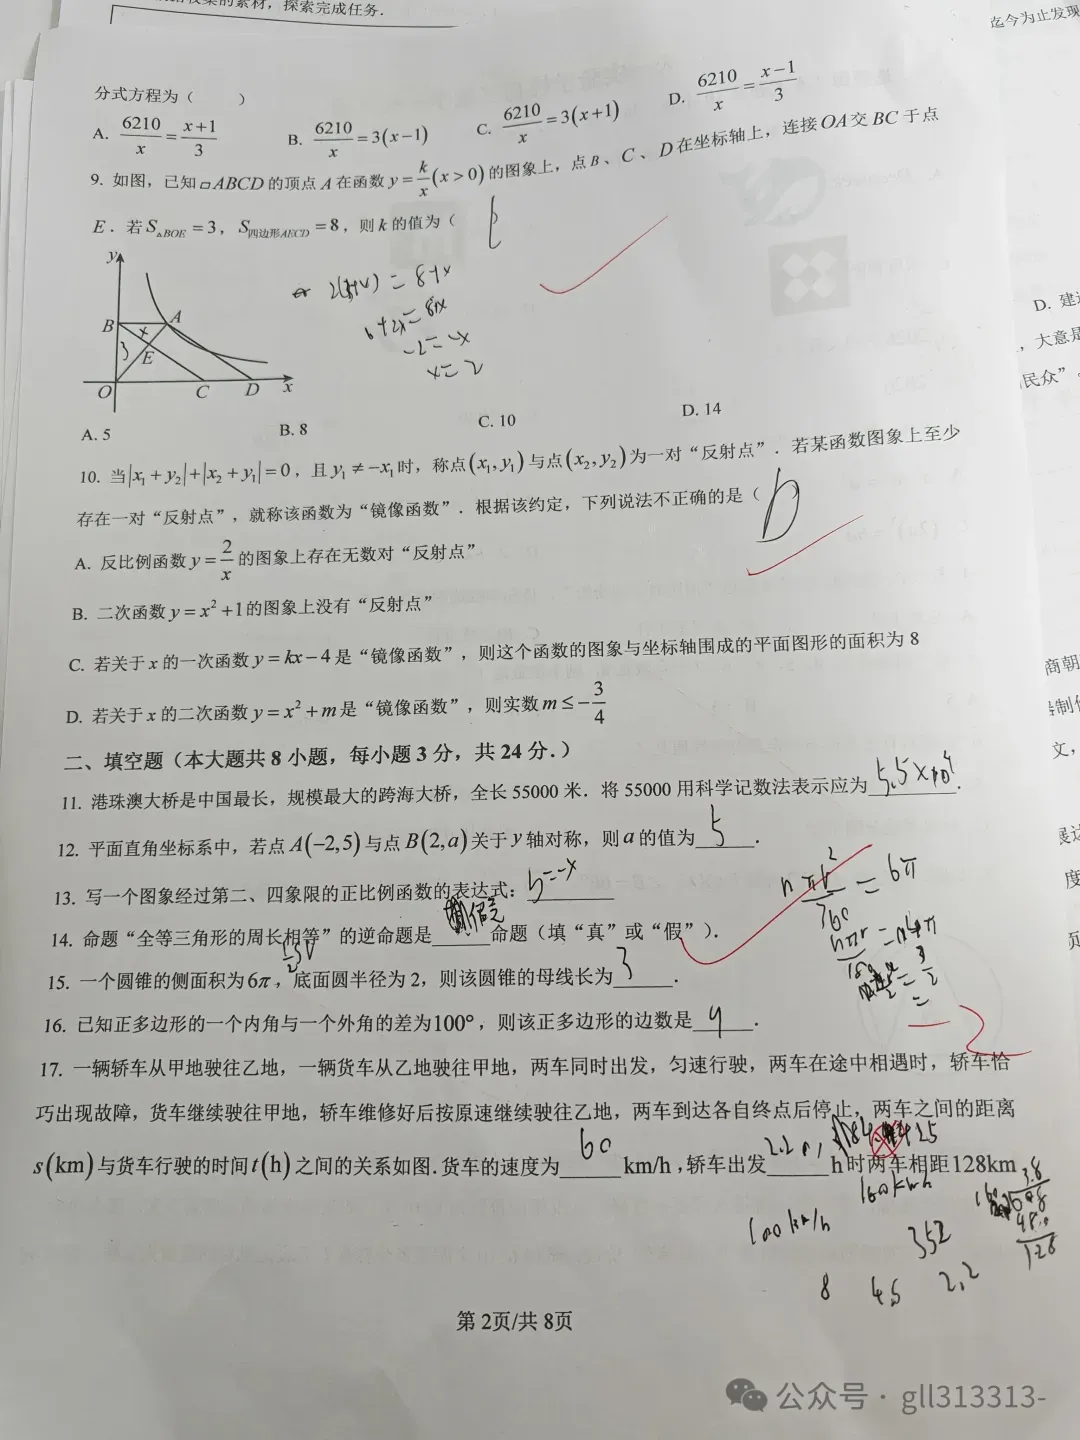 探索完成任务.
迄今为止发现
分式方程为（　　）
A. 6210/x = (x+1)/3 B. 6210/x = 3(x−1) C. 6210/x = 3(x+1) D. 6210/x = (x−1)/3
9. 如图，已知▱ABCD的顶点A在函数 y = k/x (x>0) 的图象上，点B、C、D在坐标轴上，连接OA交BC于点
E．若S△BOE = 3，S四边形AECD = 8，则k的值为（
= 8+x
6+2x=8+x
-2=-x
x=2
y
B
A
x
3
E
O
C
D
x
A. 5 B. 8 C. 10 D. 14
D. 建
，大意是
民众”
10. 当|x₁+y₂|+|x₂+y₁|=0，且y₁≠−x₁时，称点(x₁,y₁)与点(x₂,y₂)为一对“反射点”．若某函数图象上至少
存在一对“反射点”，就称该函数为“镜像函数”．根据该约定，下列说法不正确的是（ b ）
A. 反比例函数 y = 2/x 的图象上存在无数对“反射点”
B. 二次函数 y = x²+1的图象上没有“反射点”
C. 若关于x的一次函数 y = kx−4是“镜像函数”，则这个函数的图象与坐标轴围成的平面图形的面积为8
D. 若关于x的二次函数 y = x²+m是“镜像函数”，则实数m ≤ −3/4
商朝
文，
二、填空题（本大题共8小题，每小题3分，共24分.）
11. 港珠澳大桥是中国最长，规模最大的跨海大桥，全长55000米．将55000用科学记数法表示应为5.5×10⁴．
12. 平面直角坐标系中，若点A(−2,5)与点B(2,a)关于y轴对称，则a的值为5．
13. 写一个图象经过第二、四象限的正比例函数的表达式：y=-x
14. 命题“全等三角形的周长相等”的逆命题是假命题（填“真”或“假”）．
= 6π
360
15. 一个圆锥的侧面积为6π，底面圆半径为2，则该圆锥的母线长为3．
16. 已知正多边形的一个内角与一个外角的差为100°，则该正多边形的边数是9．
-2
17. 一辆轿车从甲地驶往乙地，一辆货车从乙地驶往甲地，两车同时出发，匀速行驶，两车在途中相遇时，轿车恰
巧出现故障，货车继续驶往甲地，轿车维修好后按原速继续驶往乙地，两车到达各自终点后停止，两车之间的距离
s(km)与货车行驶的时间t(h)之间的关系如图.货车的速度为60km/h，轿车出发______h时两车相距128km
160km/h
100km/h
352
128
8 4.5 2.2
第2页/共8页
公众号 · gll313313-